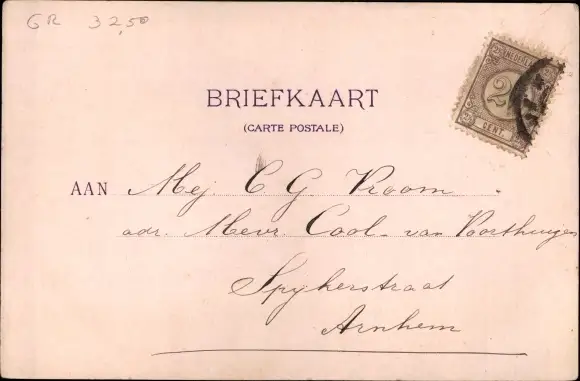 GR 32,50
NEDERLAND
2½
CENT
BRIEFKAART
(CARTE POSTALE)
AAN Mej. C G Vroom
adr. Mevr. Cool - van Voorthuijsen
Spijkerstraat
Arnhem